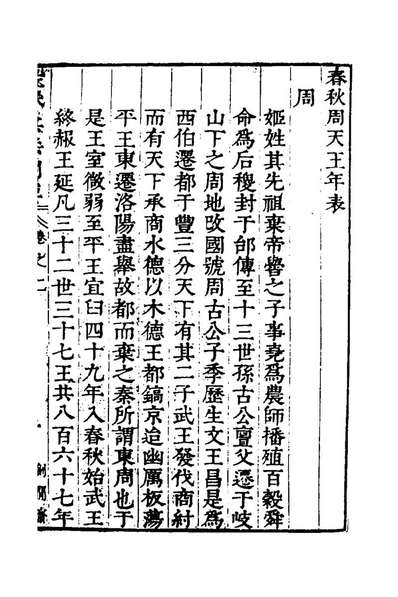 春秋周天王年表
周
姬姓其先祖棄帝嚳之子事堯爲農師播殖百穀舜
命爲后稷封于邰傳至十三世孫古公亶父遷于岐
山下之周地改國號周古公子季歷生文王昌是爲
西伯遷都于豐三分天下有其二子武王發伐商紂
而有天下承商水德以木德王都鎬京迨幽厲板蕩
平王東遷洛陽盡舉故都而棄之秦所謂東周也于
是王室微弱至平王宜臼四十九年入春秋始武王
終赧王延凡三十二世三十七王共八百六十七年
卷之一